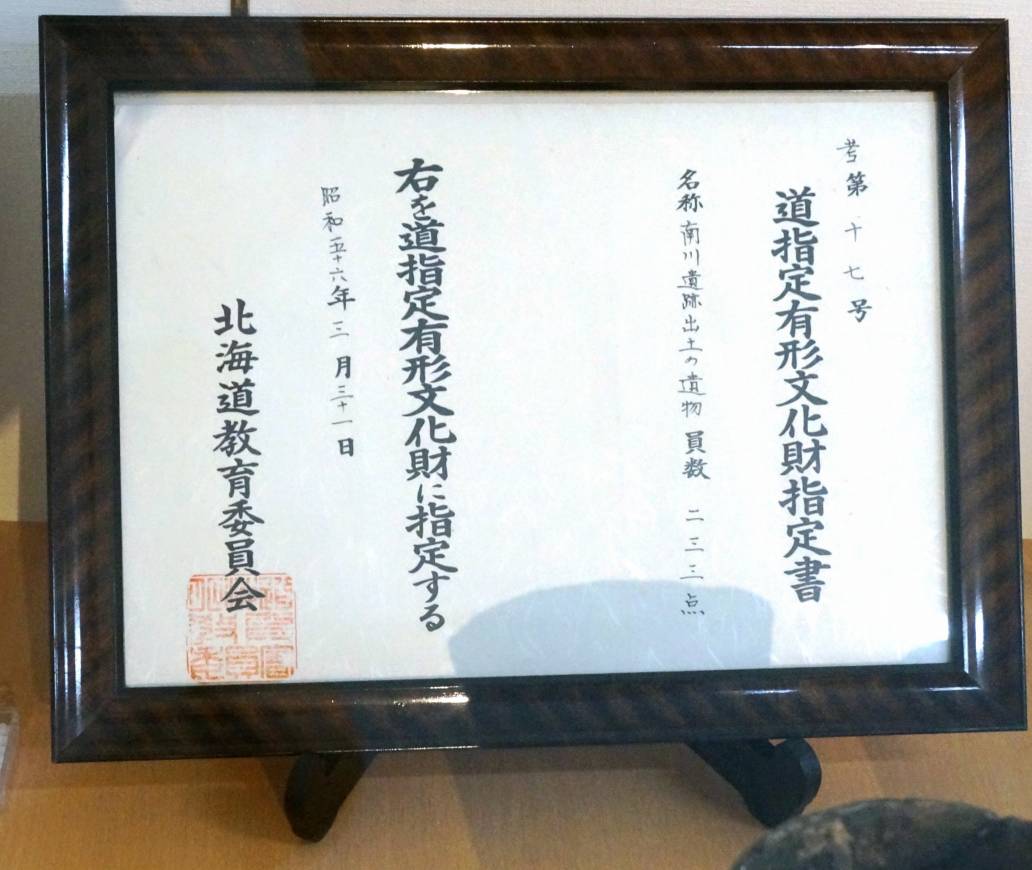 考第十七号
道指定有形文化財指定書
名称 南川遺跡出土の遺物 員数 二三三点
右を道指定有形文化財に指定する
昭和五十六年三月三十一日
北海道教育委員会